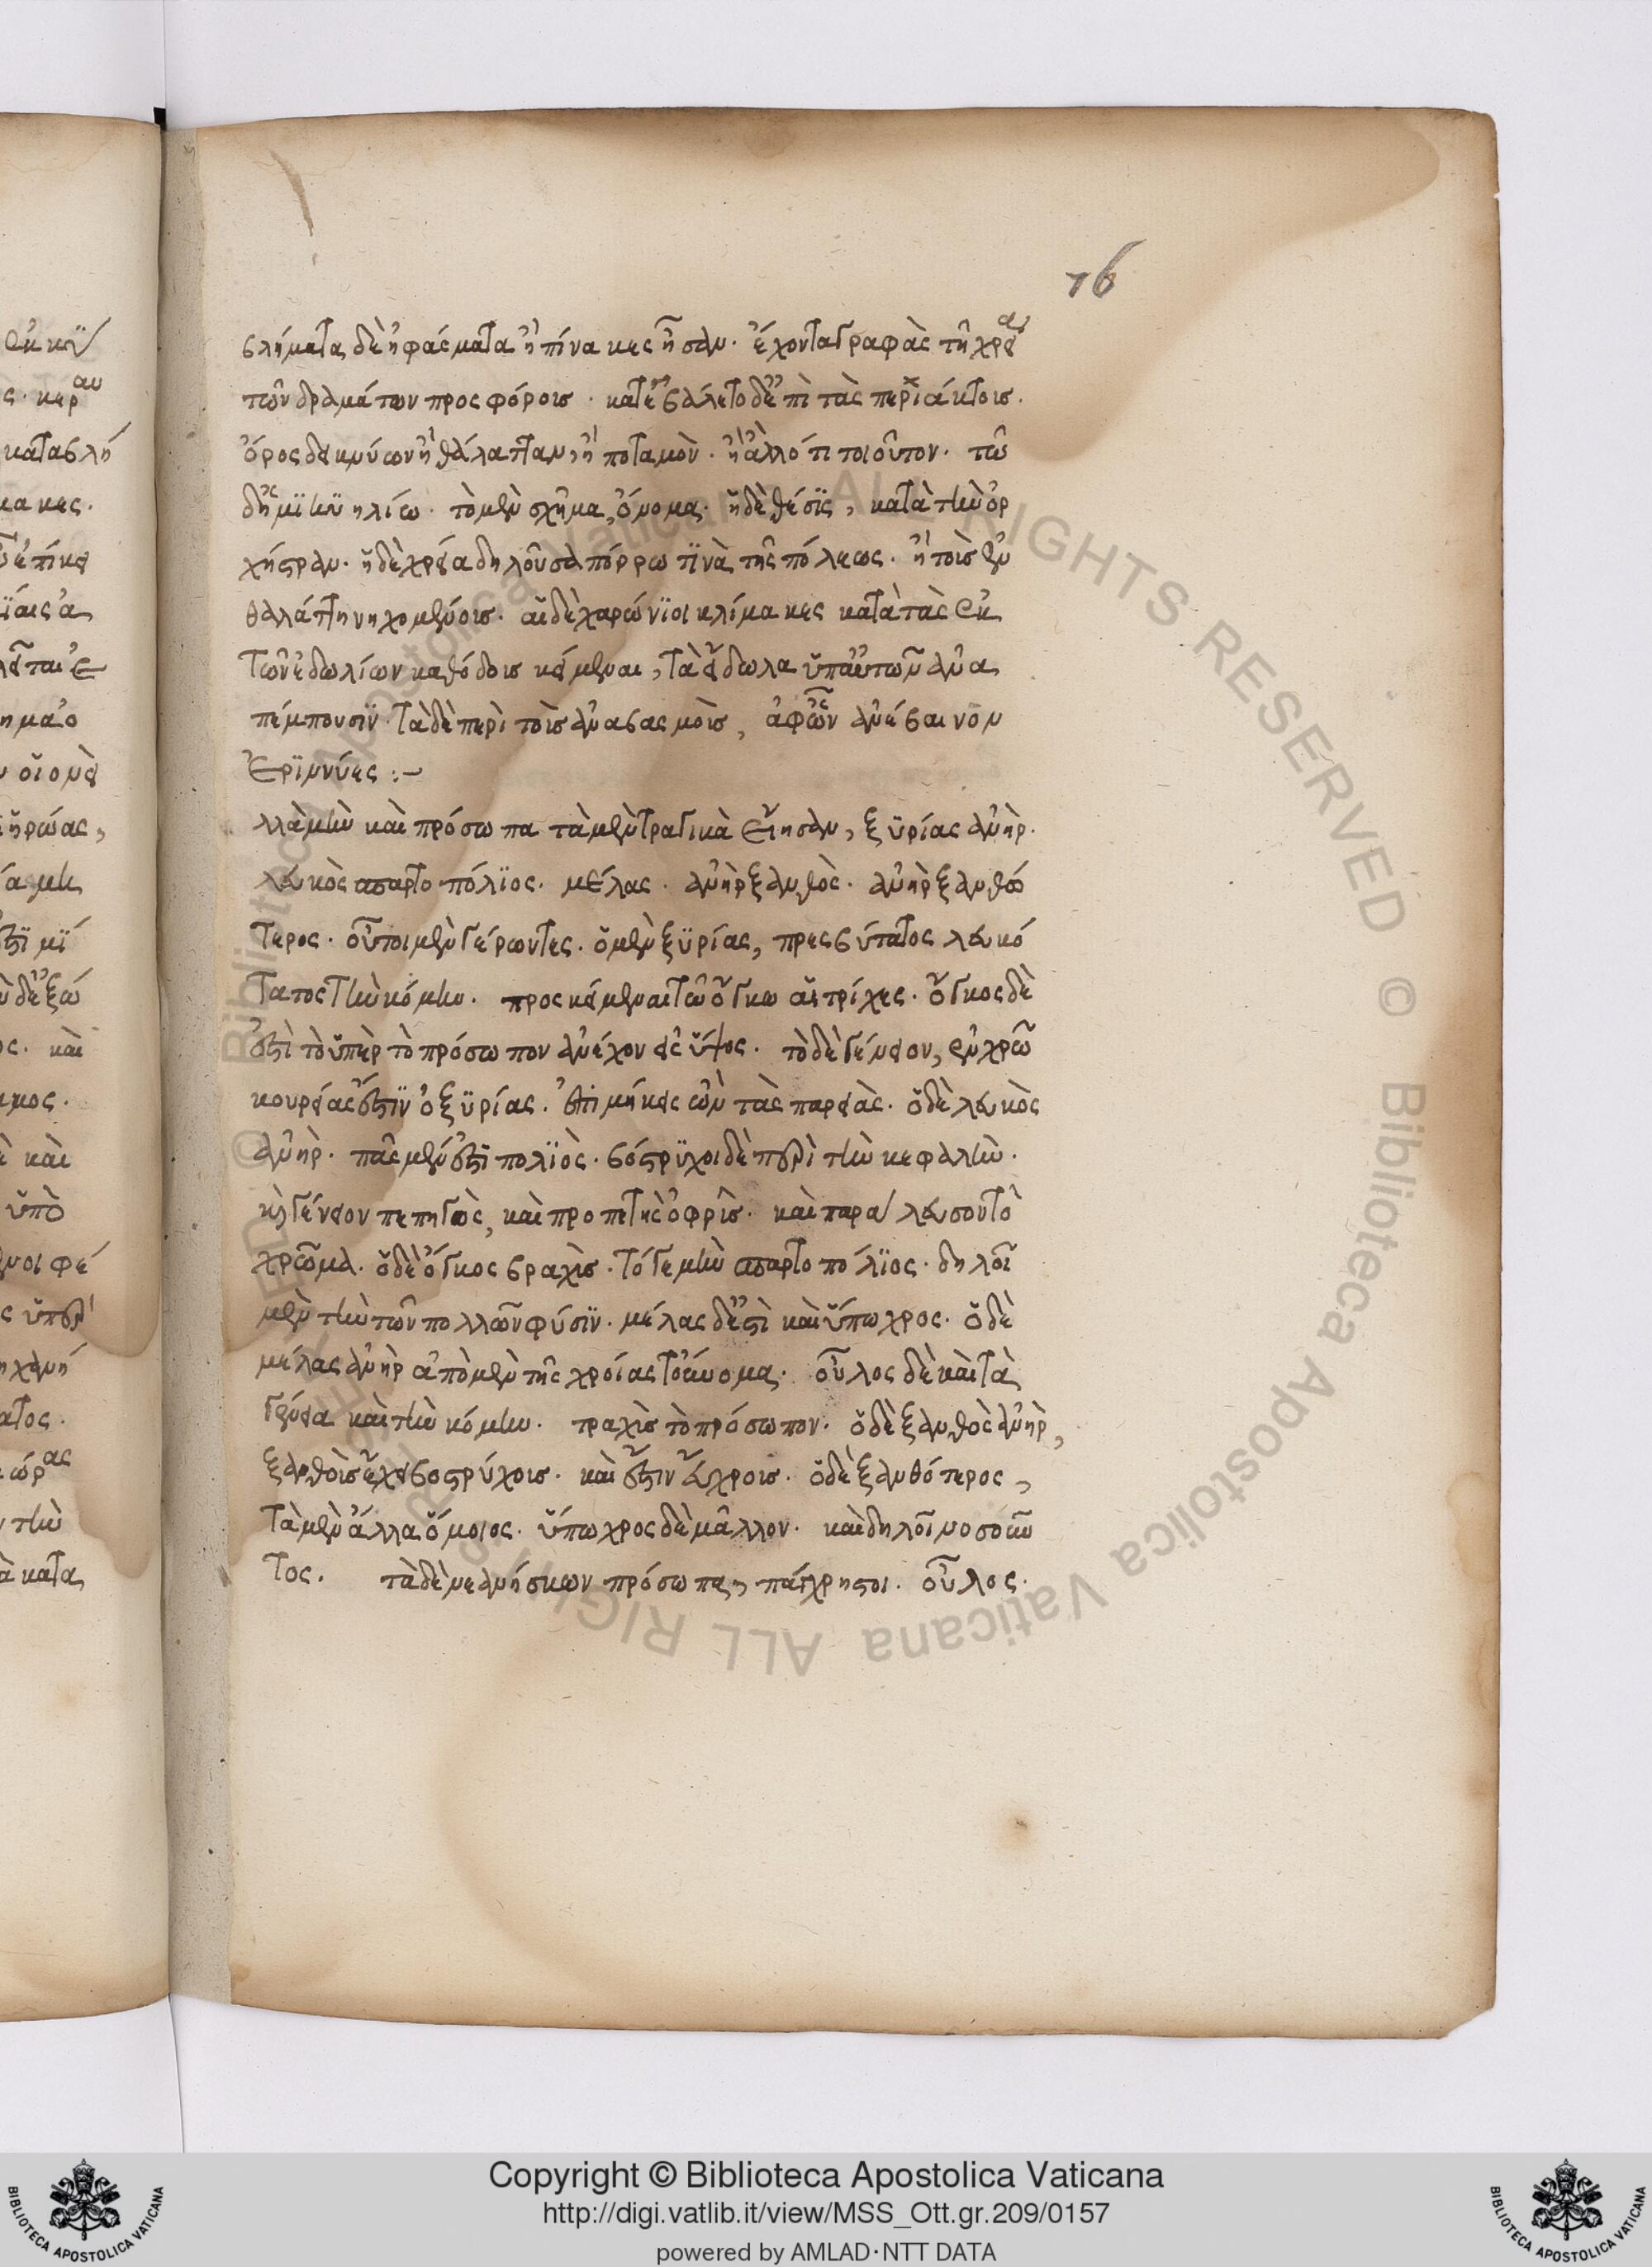 76
βλήματα δὲ ἢ φάσματα ἢ πίνακες ἦσαν. ἔχοντα γραφὰς τῆ χρεία
τῶν δραμάτων προσφόροις. κατεβάλετο δ' ἐπὶ τὰς περιάκτοις.
ὄρος δεικνύων ἢ θάλατταν, ἢ ποταμὸν. ἢ ἄλλό τι τοιοῦτον. τῶ
δ' ἡμϊκυ ηλίω. τὸ μὲν σχῆμα, ὄνομα. ἡ δὲ θέσϊς, κατὰ τὴν ὀρ
χήστραν. ἡ δὲ χρεία δηλοῦσα πόρρω τϊνὰ τῆς πόλεως. ἢ τοῖς ἐν
θαλάττη νηχομένοις. αἱ δὲ χαρώνϊοι κλίμακες κατὰ τὰς ἐκ
τῶν ἑδωλίων καθόδοις κείμεναι, τὰ εἴδωλα ὑπ' αὐτῶν ἀνα
πέμπουσϊν. τὰ δὲ περὶ τοῖς ἀναβασμοῖς, ἀφ' ὧν ἀνέβαινον
Ἐρϊννύες :~
λλὰ μὴν καὶ πρόσωπα τὰ μὲν τραγικὰ εἴησαν, ξϋρίας ἀνὴρ.
λευκὸς σπαρτοπόλϊος. μέλας. ἀνὴρ ξανθὸς. ἀνὴρ ξανθό
τερος. οὗτοι μὲν γέροντες. ὁ μὲν ξϋρίας, πρεσβύτατος λευκό
τατος τὴν κόμην. προσκείμεναι τῶ ὄγκω αἱ τρίχες. ὄγκος δὲ
ἐστὶ τὸ ὑπὲρ τὸ πρόσωπον ἀνέχον εἰς ὕψος. τὸ δὲ γένειον, ἐν χρῶ
κουρείας ἐστϊν ὁ ξϋρίας. ἐπιμήκεις ὢν τὰς παρειὰς. ὁ δὲ λευκὸς
ἀνὴρ. πᾶς μέν ἐστϊ πολϊὸς. βόστρϋχοι δὲ περὶ τὴν κεφαλὴν.
κὶ γένειον πεπηγὸς, καὶ προπετῆς ὀφρῖς. καὶ παρα λευσον τὸ
χρῶμα. ὁ δὲ ὄγκος βραχὶς. τό γε μὴν σπαρτοπόλϊος. δηλοῖ
μὲν τὴν τῶν πολλῶν φύσϊν. μέλας δ' ἐστὶ καὶ ὕπωχρος. ὁ δὲ
μέλας ἀνὴρ ἀπὸ μὲν τῆς χροίας τοὔνομα. οὖλος δὲ καὶ τὰ
γένεια καὶ τὴν κόμην. τραχὶς τὸ πρόσωπον. ὁ δὲ ξανθὸς ἀνὴρ,
ξανθοῖς ἔχει βοστρύχοις. καὶ ἔστιν εὔχροις. ὁ δὲ ξανθότερος,
τὰ μὲν ἄλλα ὅμοιος. ὕπωχρος δὲ μᾶλλον. καὶ δηλοῖ νοσοῦν
τος. τὰ δὲ νεανήσκων πρόσωπα, πάγχρηστοι. οὖλος.
Copyright © Biblioteca Apostolica Vaticana
http://digi.vatlib.it/view/MSS_Ott.gr.209/0157
powered by AMLAD·NTT DATA